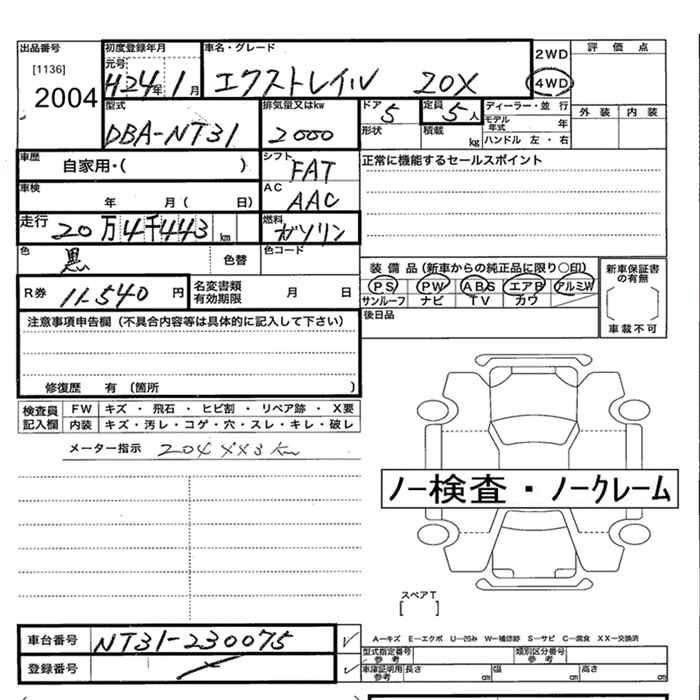 出品番号 初度登録年月 車名・グレード 2WD 評価点
[1136] 元号 4WD
2004 H24年 1月 エクストレイル 20X 外装 内装
型式 排気量又はkw ドア 定員 ディーラー・並行
DBA-NT31 2000 5 5人 モデル年式 年
形状 積載 kg ハンドル 左・右
車歴 自家用・( ) シフト FAT 正常に機能するセールスポイント
車検 年 月( 日) AC AAC
走行 20万4千443km 燃料 ガソリン
色 黒 色替 色コード
装備品(新車からの純正品に限り○印) 新車保証書の有無
R券 11,540円 名変書類有効期限 月 日 PS PW ABS エアB アルミW
サンルーフ ナビ TV カワ
注意事項申告欄(不具合内容等は具体的に記入して下さい) 後日品 車載不可
修復歴 有(箇所 )
検査員記入欄 FW キズ・飛石・ヒビ割・リペア跡・X要
内装 キズ・汚レ・コゲ・穴・スレ・キレ・破レ
メーター指示 204443km
ノー検査・ノークレーム
スペアT
[ ]
車台番号 NT31-230075 A−キズ E−エクボ U−凹み W−補修跡 S−サビ C−腐食 XX−交換済
型式指定番号 参考 類別区分番号 参考
登録番号 車庫証明用 参考 長さ cm 幅 cm 高さ cm